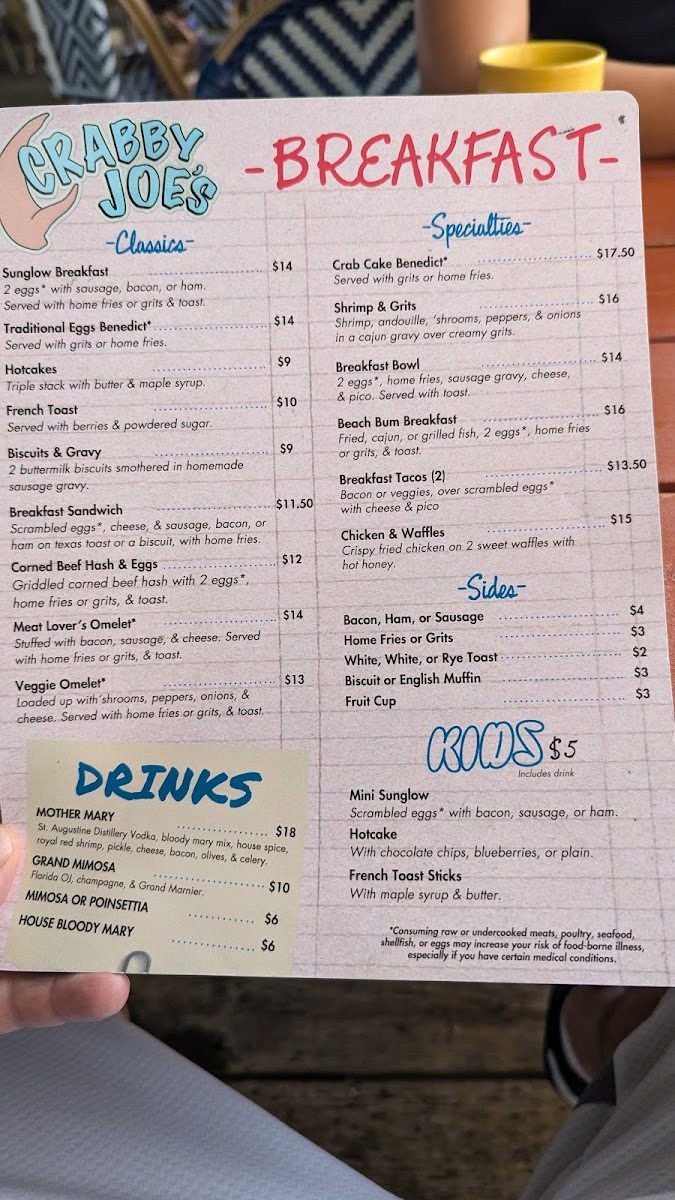 CRABBY
JOE'S
-BREAKFAST-
-Classics-
Sunglow Breakfast $14
2 eggs* with sausage, bacon, or ham.
Served with home fries or grits & toast.
Traditional Eggs Benedict* $14
Served with grits or home fries.
Hotcakes $9
Triple stack with butter & maple syrup.
French Toast $10
Served with berries & powdered sugar.
Biscuits & Gravy $9
2 buttermilk biscuits smothered in homemade
sausage gravy.
Breakfast Sandwich $11.50
Scrambled eggs*, cheese, & sausage, bacon, or
ham on texas toast or a biscuit, with home fries.
Corned Beef Hash & Eggs $12
Griddled corned beef hash with 2 eggs*,
home fries or grits, & toast.
Meat Lover's Omelet* $14
Stuffed with bacon, sausage, & cheese. Served
with home fries or grits, & toast.
Veggie Omelet* $13
Loaded up with'shrooms, peppers, onions, &
cheese. Served with home fries or grits, & toast.
DRINKS
MOTHER MARY $18
St. Augustine Distillery Vodka, bloody mary mix, house spice,
royal red shrimp, pickle, cheese, bacon, olives, & celery.
GRAND MIMOSA $10
Florida OJ, champagne, & Grand Marnier.
MIMOSA OR POINSETTIA $6
HOUSE BLOODY MARY $6
-Specialties-
Crab Cake Benedict* $17.50
Served with grits or home fries.
Shrimp & Grits $16
Shrimp, andouille, 'shrooms, peppers, & onions
in a cajun gravy over creamy grits.
Breakfast Bowl $14
2 eggs*, home fries, sausage gravy, cheese,
& pico. Served with toast.
Beach Bum Breakfast $16
Fried, cajun, or grilled fish, 2 eggs*, home fries
or grits, & toast.
Breakfast Tacos (2) $13.50
Bacon or veggies, over scrambled eggs*
with cheese & pico
Chicken & Waffles $15
Crispy fried chicken on 2 sweet waffles with
hot honey.
-Sides-
Bacon, Ham, or Sausage $4
Home Fries or Grits $3
White, White, or Rye Toast $2
Biscuit or English Muffin $3
Fruit Cup $3
KIDS $5
Includes drink
Mini Sunglow
Scrambled eggs* with bacon, sausage, or ham.
Hotcake
With chocolate chips, blueberries, or plain.
French Toast Sticks
With maple syrup & butter.
*Consuming raw or undercooked meats, poultry, seafood,
shellfish, or eggs may increase your risk of food-borne illness,
especially if you have certain medical conditions.